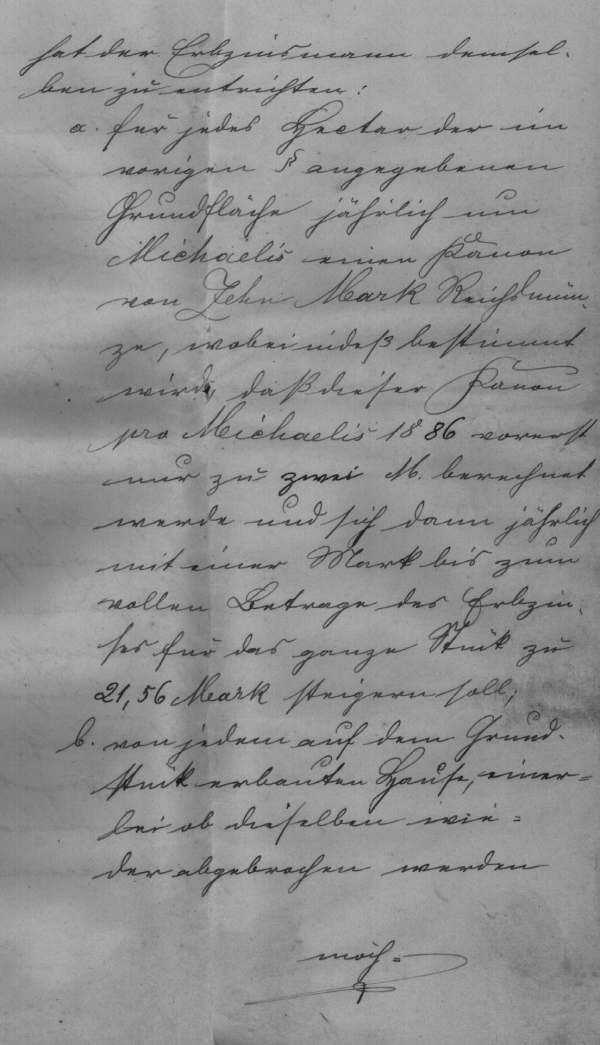 hat der Erbzinsmann demsel-
ben zu entrichten:
a. für jedes Hectar der im
vorigen § angegebenen
Grundfläche jährlich um
Michaelis einen Kanon
von Zehn Mark Reichsmün-
ze, wobei indeß bestimmt
wird, daß dieser Kanon
pro Michaelis 1886 vorerst
nur zu zwei M. berechnet
werde und sich dann jährlich
mit einer Mark bis zum
vollen Betrage des Erbzin-
ses für das ganze Stük zu
21,56 Mark steigern soll;
b. von jedem auf dem Grund-
stük erbauten Hause, einer=
lei ob dieselben wie=
der abgebrochen werden
möch=